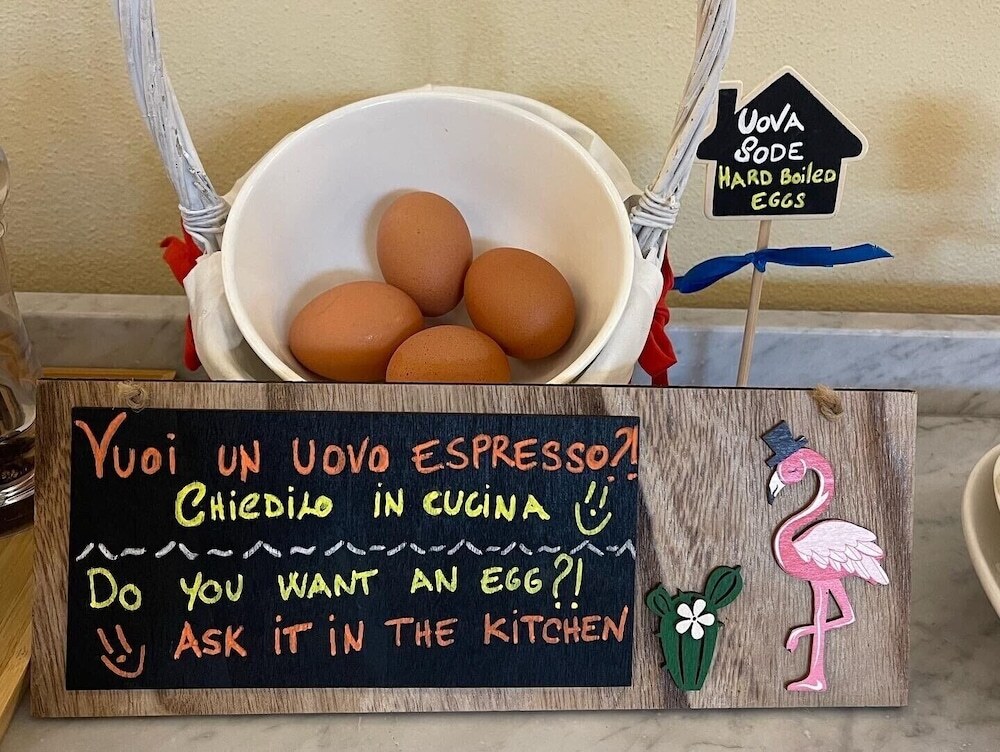 UOVA
SODE
HARD Boiled
EGGS
Vuoi un uovo ESPRESSO?!
CHiEDiLO iN CUCiNA
Do YOU WANT AN EGG?!
ASK iT iN THE KiTCHEN